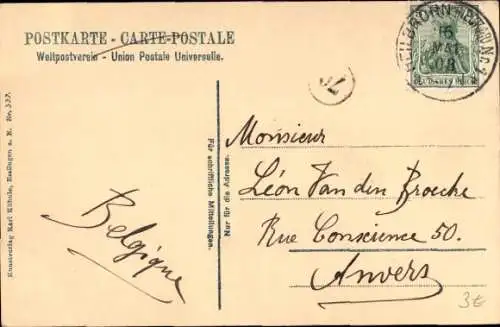 POSTKARTE - CARTE-POSTALE
Weltpostverein - Union Postale Universelle.
HEILBRONN
MAI
08
No. 1
Kunstverlag Karl Kühnle, Esslingen a. N. Nr. 537.
Belgique
Für schriftliche Mitteilungen.
Nur für die Adresse.
Monsieur
Léon Van den Broeche
Rue Conscience 50.
Anvers
3€